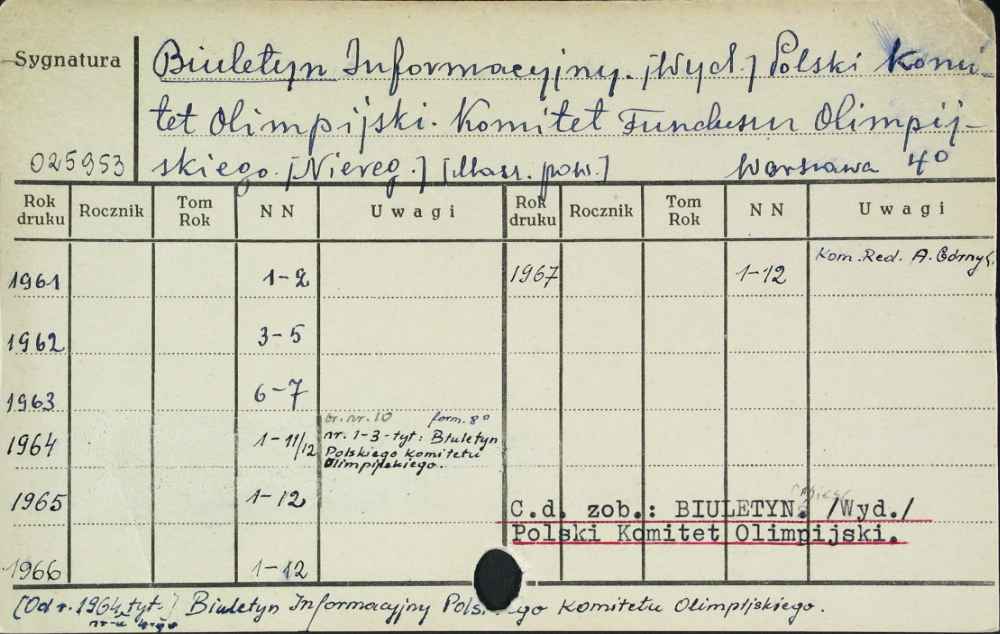 Sygnatura
Biuletyn Informacyjny. [Wyd.] Polski Komi-
tet Olimpijski. Komitet Funduszu Olimpij-
025953 skiego. [Niereg.] [Masz. pow.] Warszawa 4°
Rok druku Rocznik Tom Rok N N Uwagi Rok druku Rocznik Tom Rok N N Uwagi
1961 1-2 1967 1-12 Kom. Red. A. Górny i.
1962 3-5
1963 6-7
br. nr. 10 form. 8°
1964 1-11/12 nr. 1-3-tyt: Biuletyn
Polskiego Komitetu
Olimpijskiego.
1965 1-12
C.d. zob.: BIULETYN. /Wyd./
Polski Komitet Olimpijski.
1966 1-12
[Od r. 1964 tyt.] Biuletyn Informacyjny Polskiego Komitetu Olimpijskiego.
nr-u 4-go